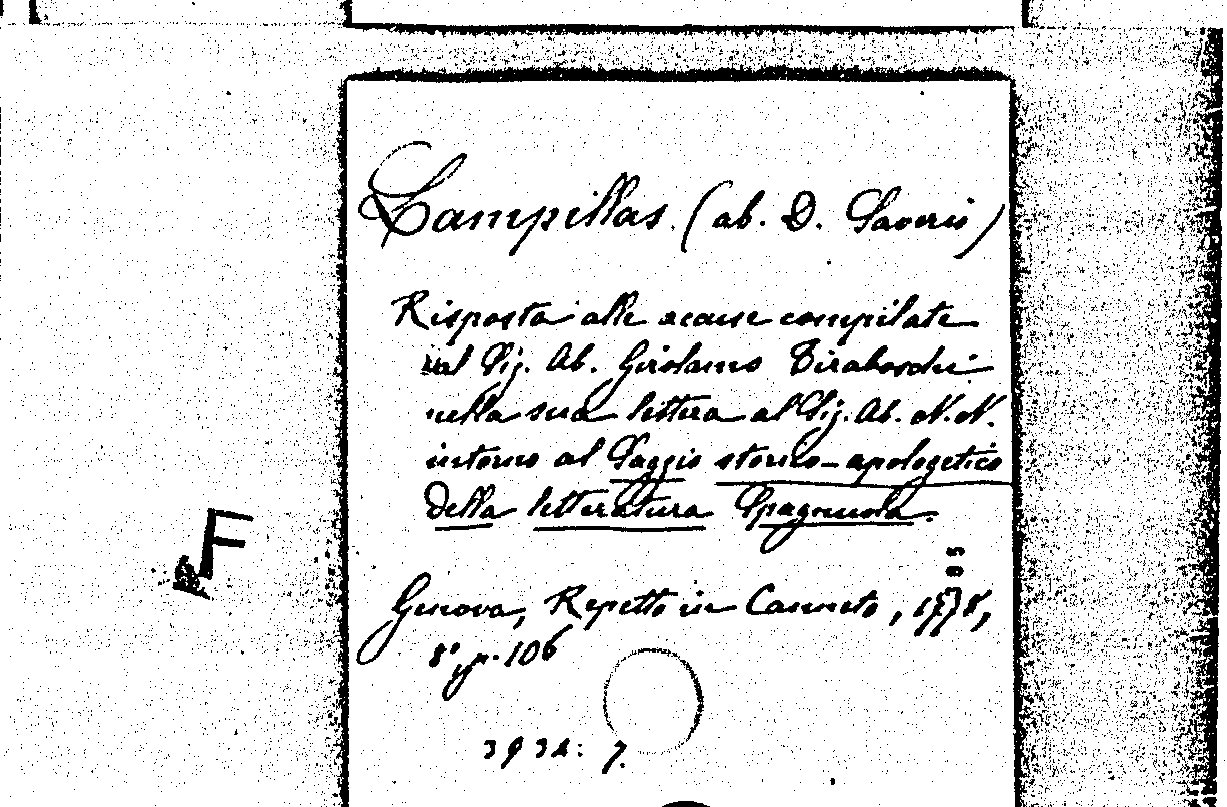 Lampillas. (ab. D. Saverio)
Risposta alle accuse compilate
dal Sig. Ab. Girolamo Tiraboschi
nella sua lettera al Sig. Ab. N. N.
intorno al Saggio storico-apologetico
della letteratura Spagnuola.
Genova, Repetto in Canneto, 1778,
8°, p. 106
3932: 7.
F